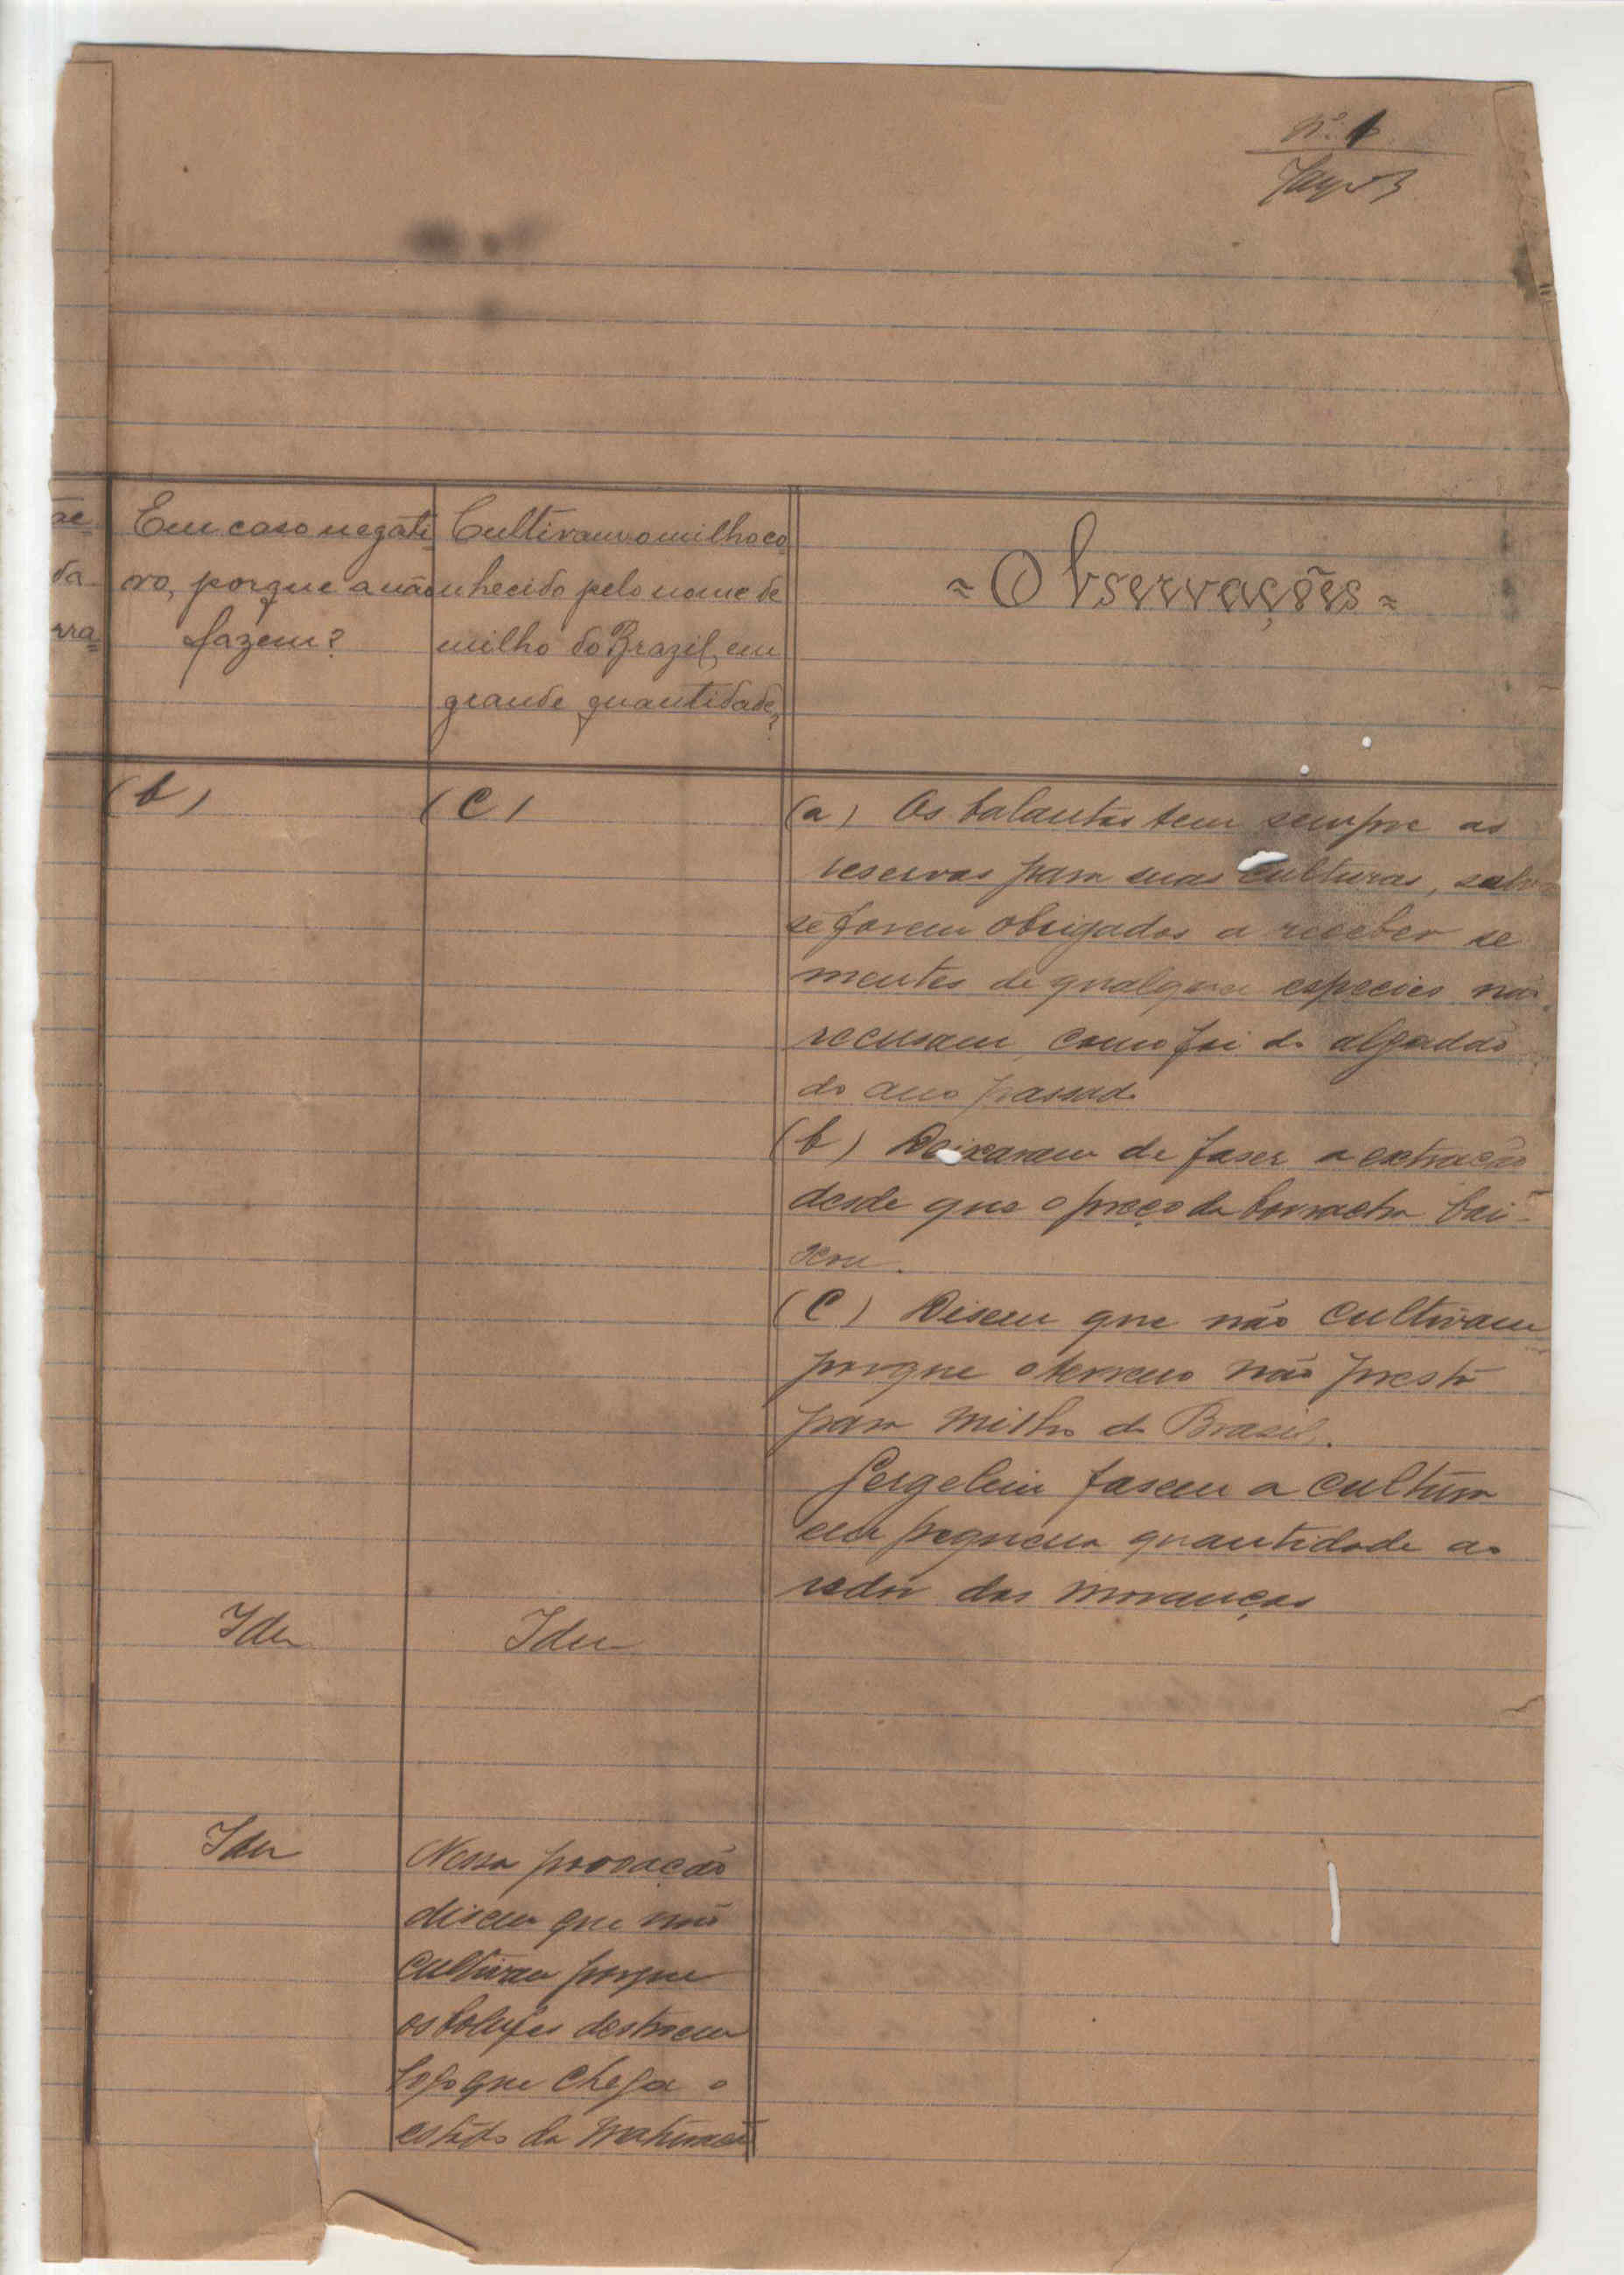 Nº 1
ae=
da
rra=
Em caso negati-
vo, porque a não
fazem?
Cultivam o milho co-
nhecido pelo nome de
milho do Brazil, em
grande quantidade?
= Observações =
(b)
(c)
(a) Os balantas tem sempre as
reservas para suas culturas, salvo
se forem obrigados a receber se
mentes de qualquer especies não
recusam, como foi do algodão
do ano passado
(b) Deixaram de faser a extração
desde que o preço da borracha bai-
xou.
(c) Disem que não cultivam
porque o terreno não presta
para milho do Brasil.
Gergelim fasem a cultura
em pequena quantidade ao
redor das moranças
Idem
Idem
Idem
Nessa povoação
disem que não
cultivam porque
os destroem
logo que chega o
estado da maturação